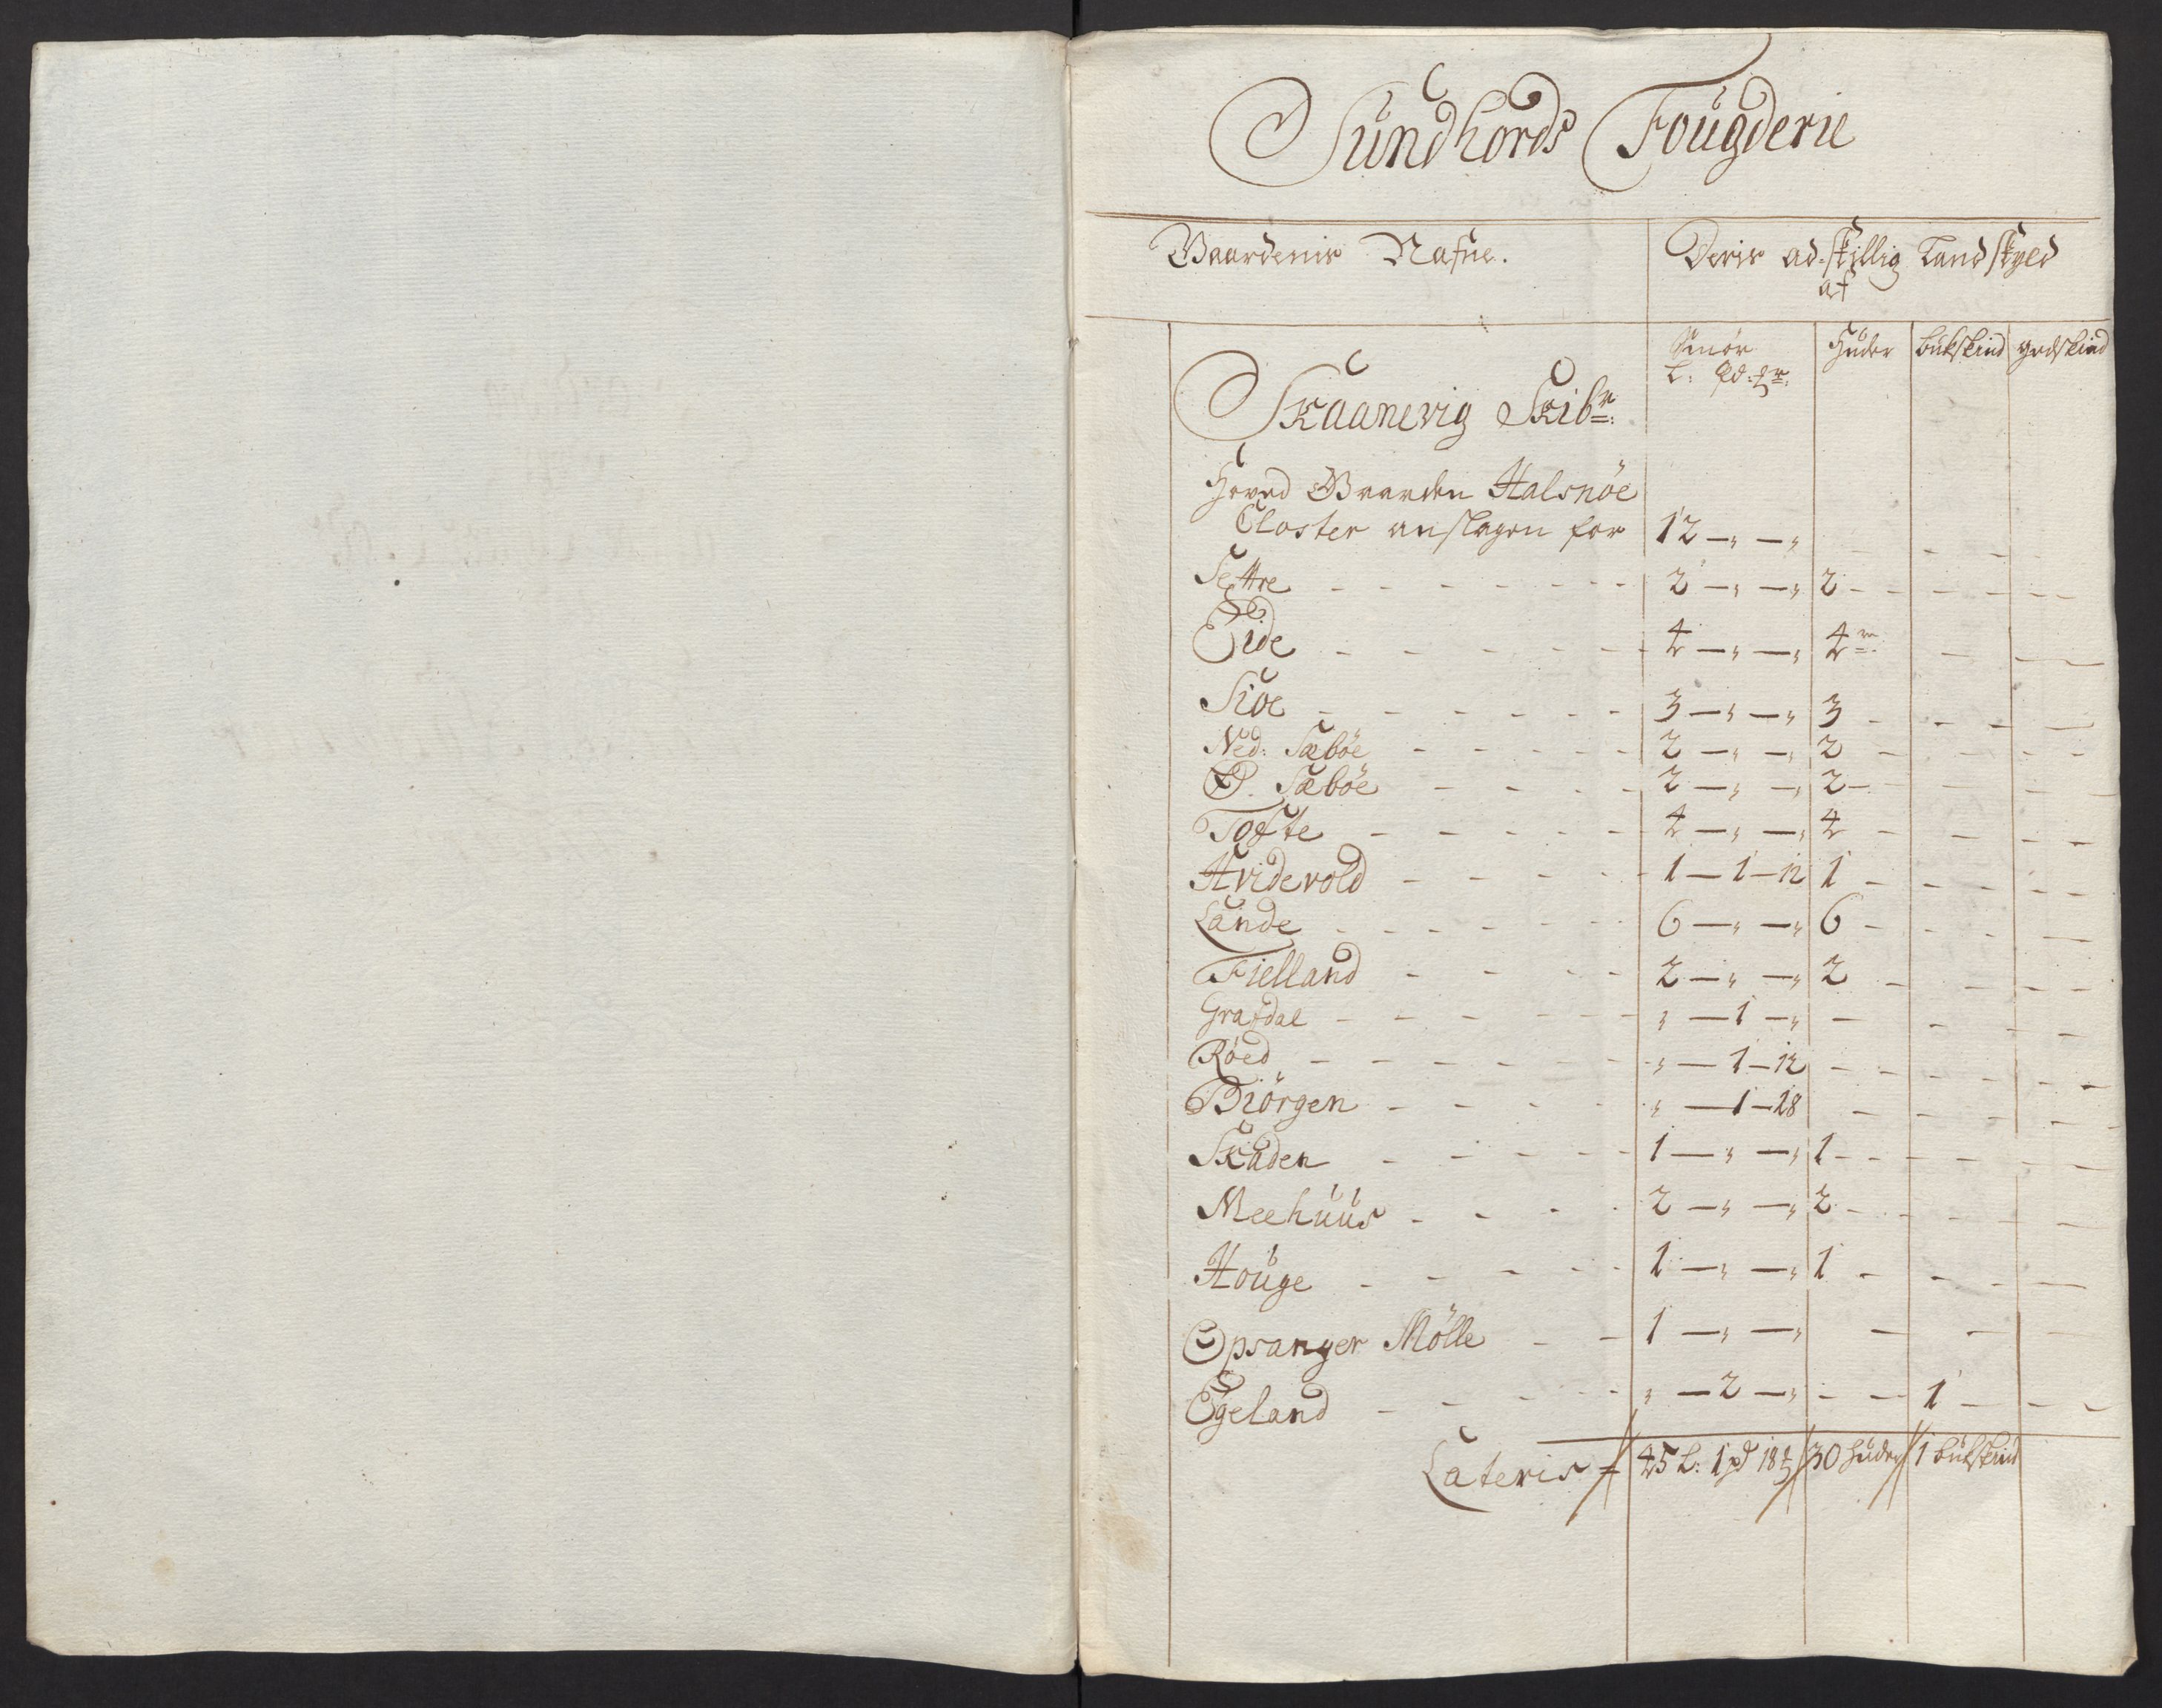 Sundhords Fougderie
Gaardenis Nafne. Deris ad-skillig Landskyld
af
Smør Huder bukskind gedskind
L: Pd: Mr:
Skaanevig Skibr:
Hoved Gaarden Halsnöe
Closter anslagen for 12 — " — "
Settre - - - - - - - 2 — " — " 2 - - - - - -
Eide - - - - - - 4 — " — " 4r - -
Siöe - - - - - - 3 — " — " 3 - - - -
Ned: Sæböe - - - - 2 — " — " 2 - - - -
Ø. Sæböe - - - - 2 — " — " 2 - - - -
Tofte - - - - - 4 — " — " 4 - - - -
Hvidevold - - - - - 1 — 1 — 12 1 - - - - -
Lande - - - - - - 6 — " — " 6 - - - -
Fielland - - - - 2 — " — " 2 - - - -
Grafdal - - - - - - " — 1 — " - - - -
Röed - - - - - - " — 1 — 12 - - - - - -
Biörgen - - - - " — 1 — 18 - - - - -
Skaden - - - - - 1 — " — " 1 - - - - - -
Meehuus - - - - 2 — " — " 2 - - - - -
Houge - - - - - 1 — " — " 1 - - - -
Opsanger Mölle - - 1 — " — " - - -
Egeland - - - - - " — 2 — " - - 1 - - -
Lateris = 45 L: 1 pd 18 30 huder 1 bukskind